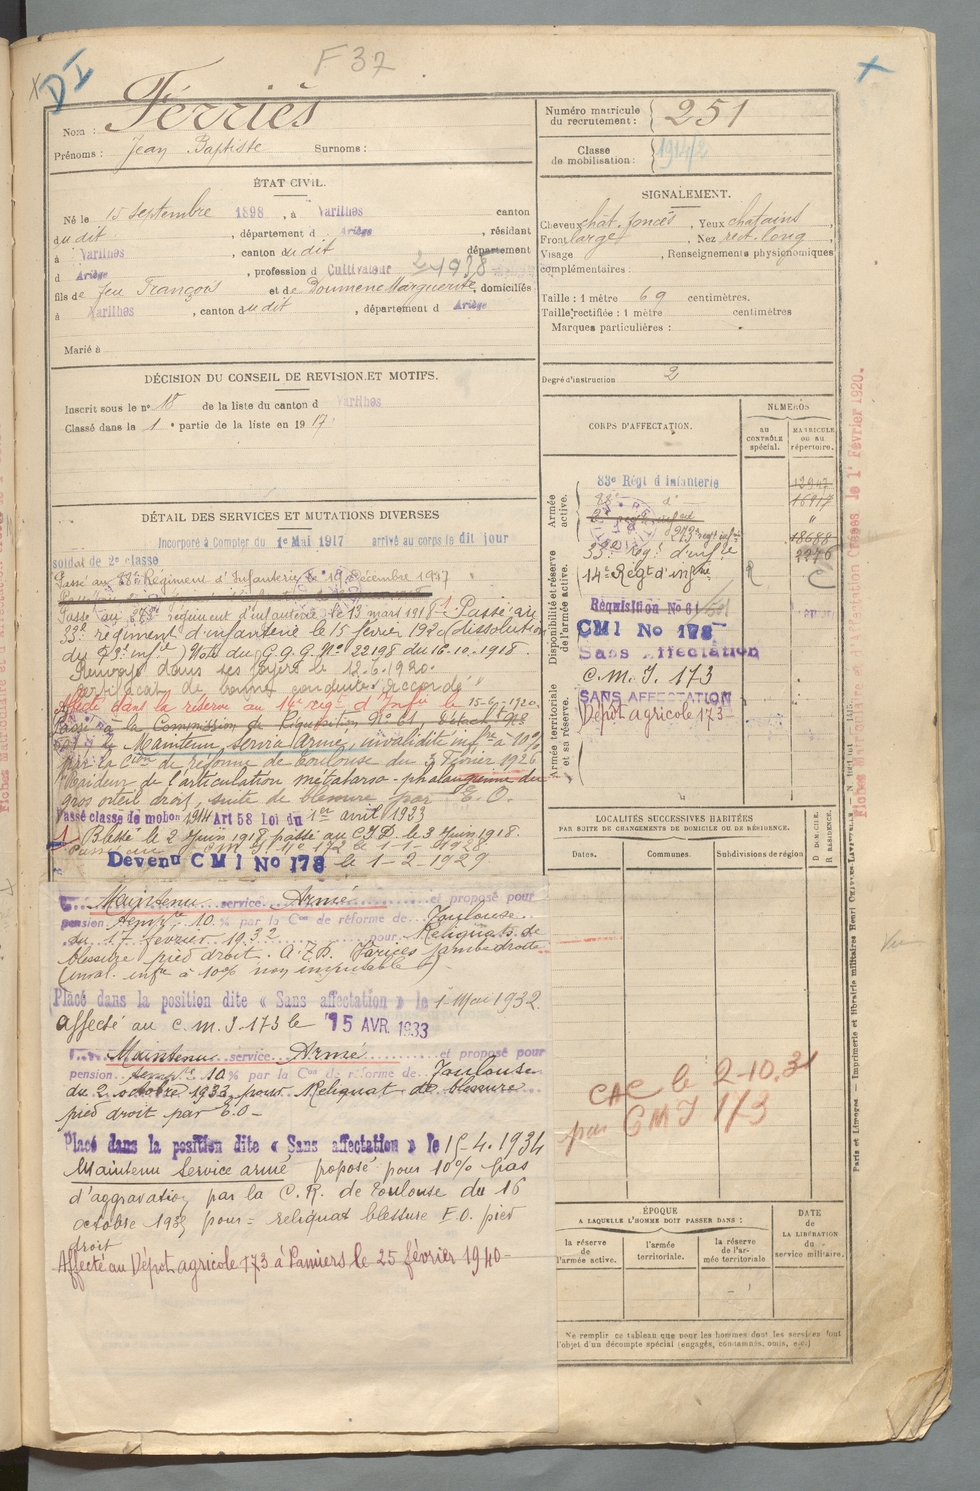 DI
F 37
Nom : Ferriès
Prénoms : Jean Baptiste Surnoms :
Numéro matricule du recrutement : 251
Classe de mobilisation :
ÉTAT CIVIL.
Né le 15 septembre 1898, à Varilhes canton
du dit, département d Ariège, résidant
à Varilhes, canton du dit département
d Ariège, profession d Cultivateur
fils de feu François et de Doumenc Marguerite, domiciliés
à Varilhes, canton du dit, département d Ariège
Marié à
SIGNALEMENT.
Cheveux chât. foncés, Yeux chatains
Front large, Nez rect. long,
Visage , Renseignements physionomiques
complémentaires :
Taille : 1 mètre 69 centimètres.
Taille rectifiée : 1 mètre centimètres
Marques particulières :
Degré d'instruction 2
DÉCISION DU CONSEIL DE REVISION ET MOTIFS.
Inscrit sous le n° 18 de la liste du canton d Varilhes
Classé dans le 1 e partie de la liste en 1917.
DÉTAIL DES SERVICES ET MUTATIONS DIVERSES
Incorporé à Compter du 1e Mai 1917 arrivé au corps le dit jour
soldat de 2e classe
Passé au 88e Régiment d'Infanterie le 19 Décembre 1917
Passé au 273e régiment d'infanterie le 13 mars 1918. Passé au
33e régiment d'infanterie le 15 février 1920 (dissolution
du infie) Note du G.Q.G. N° 22198 du 16.10.1918.
Renvoyé dans ses foyers le 12.6.1920.
certificat de bonne conduite "accordé"
Affecté dans la réserve au 14e régt d'Infie le
Passé à la Commission de Réquisition N° 61,
Maintenu Service Armé, invalidité infre à 10%
par la Cion de réforme de Toulouse du 3 Février 1926
Raideur de l'articulation métatarso-phalangienne du
gros orteil droit, suite de blessure par E.O.
Passé classe de mobon 1914 Art 58 Loi du 1er avril 1923
Blessé le 2 Juin 1918 passé au C.I.D. le 3 Juin 1918.
le 1-1-1928
Devenu CMI No 173 le 1-2-1929
Maintenu service Armé et proposé pour
pension tempre 10 % par la Con de réforme de Toulouse
du 17 février 1932 pour Reliquats de
blessure pied droit. Varices jambe droite
(inval. infre à 10% non imputable
Placé dans la position dite « Sans affectation » le 1 Mai 1932
affecté au C.M.I 173 le 15 AVR. 1933
Maintenu service Armé et proposé pour
pension tempre 10 % par la Con de réforme de Toulouse
du 2 octobre 1933 pour Reliquat de blessure
pied droit par E.O -
Placé dans la position dite « Sans affectation » le 15-4.1934
Maintenu Service armé proposé pour 10% pas
d'aggravation par la C.R. de Toulouse du 16
octobre 1935 pour = reliquat blessure E.O. pied
droit
Affecté au Dépôt agricole 173 à Pamiers le 25 février 1940 -
CORPS D'AFFECTATION.
NUMÉROS
AU CONTRÔLE spécial.
MATRICULE OU AU répertoire.
Armée active.
Disponibilité et réserve de l'armée active.
Armée territoriale et sa réserve.
83e Régt d Infanterie
88e d°
16917
273e regt infie
18688
33e Régt d'infie 2276
14e Régt d'infie R
Réquisition No 61
CMI No 173
Sans Affectation
C.M.I. 173
SANS AFFECTATION
Dépôt agricole 173 -
LOCALITÉS SUCCESSIVES HABITÉES
PAR SUITE DE CHANGEMENTS DE DOMICILE OU DE RÉSIDENCE.
Dates. Communes. Subdivisions de région
D DOMICILE.
R RÉSIDENCE.
CAC le 2-10.31
par CMI 173
ÉPOQUE
A LAQUELLE L'HOMME DOIT PASSER DANS :
la réserve de l'armée active.
l'armée territoriale.
la réserve de l'armée territoriale
DATE de LA LIBÉRATION du service militaire.
Ne remplir ce tableau que pour les hommes dont les services font
l'objet d'un décompte spécial (engagés, condamnés, omis, etc.)
Paris et Limoges. — Imprimerie et librairie militaires Henri CHARLES-LAVAUZELLE
Fiches Matriculaire et d'Affectation Créées le 1e Février 1920.